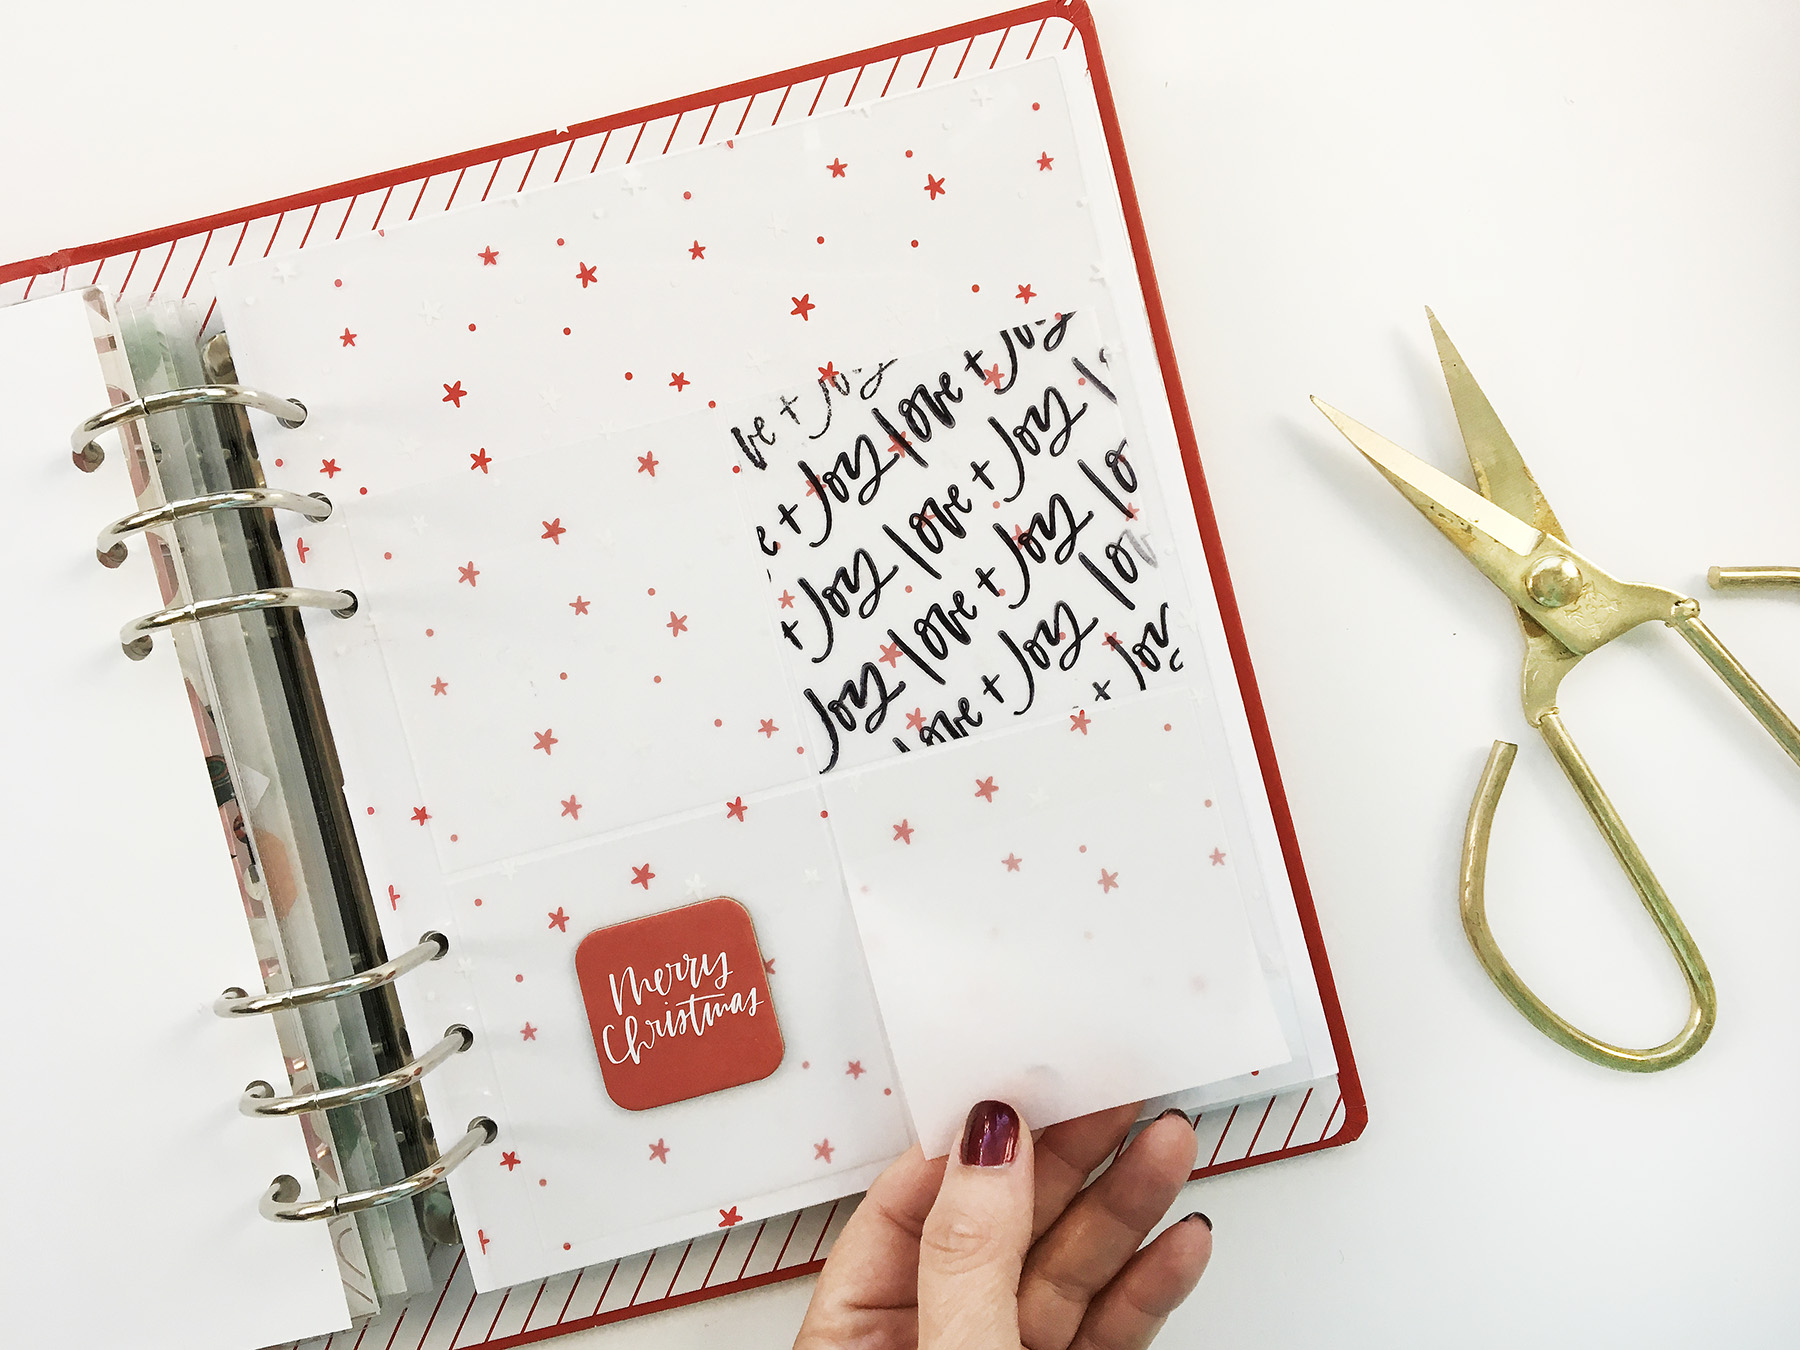 ve + Joy
love + Joy
e + Joy love + Joy lo
+ Joy love + Joy lov
Joy love + Joy
love + Joy
Merry
Christmas